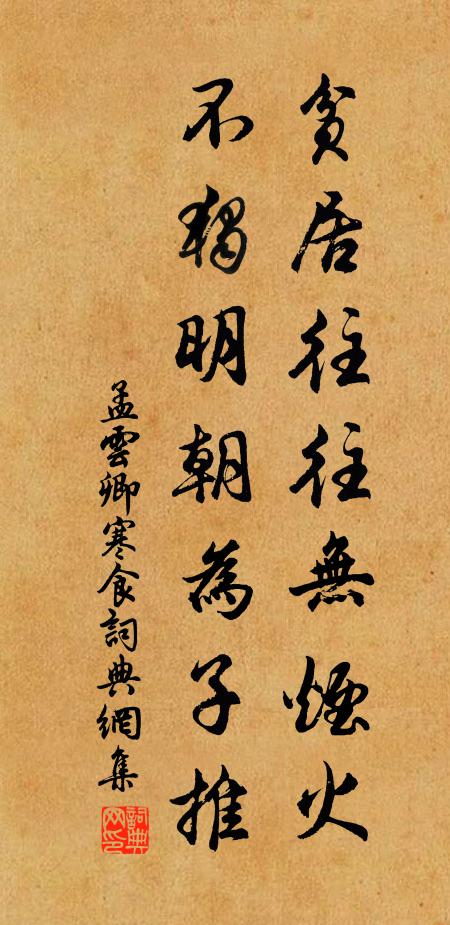 貧居往往無煙火
不獨明朝為子推
孟雲卿寒食詞典網集
詞典網印